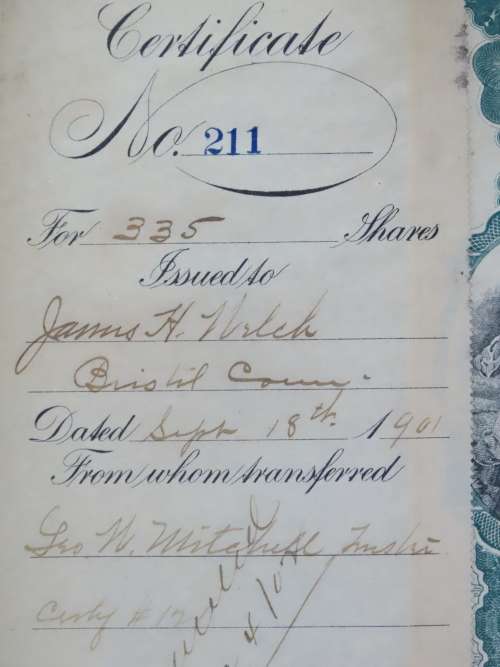 Certificate
No. 211
For 335 Shares
Issued to
James H. Welch
Bristol Conn.
Dated Sept 18th 1901
From whom transferred
Geo W. Mitchell Trustee